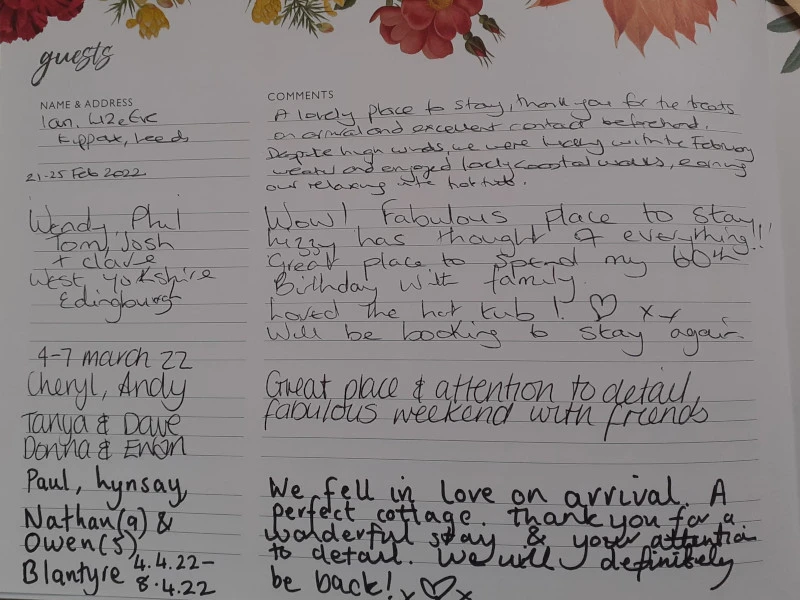 guests
NAME & ADDRESS
Ian,
Kippax, Leeds
21-25 Feb 2022
COMMENTS
A lovely place to stay, thank you for the treats
on arrival and excellent contact beforehand.
Despite high winds, we were lucky with the February
weather and enjoyed lovely coastal walks, earning
our relaxing in the hot tub.
Wendy, Phil
Tom, Josh
+ Clare
West Yorkshire
Edingburgh
Wow! Fabulous place to stay
Lizzy has thought of everything!!
Great place to spend my 60th
Birthday with family.
Loved the hot tub! ♡ x x
Will be booking to stay again.
4-7 march 22
Cheryl, Andy
Tanya & Dave
Donna & Ewan
Great place & attention to detail,
fabulous weekend with friends
Paul, Lynsay,
Nathan(9) &
Owen(5)
Blantyre 4.4.22-
8.4.22
We fell in love on arrival. A
perfect cottage. Thank you for a
wonderful stay & your attention
to detail. We will definitely
be back! x♡x